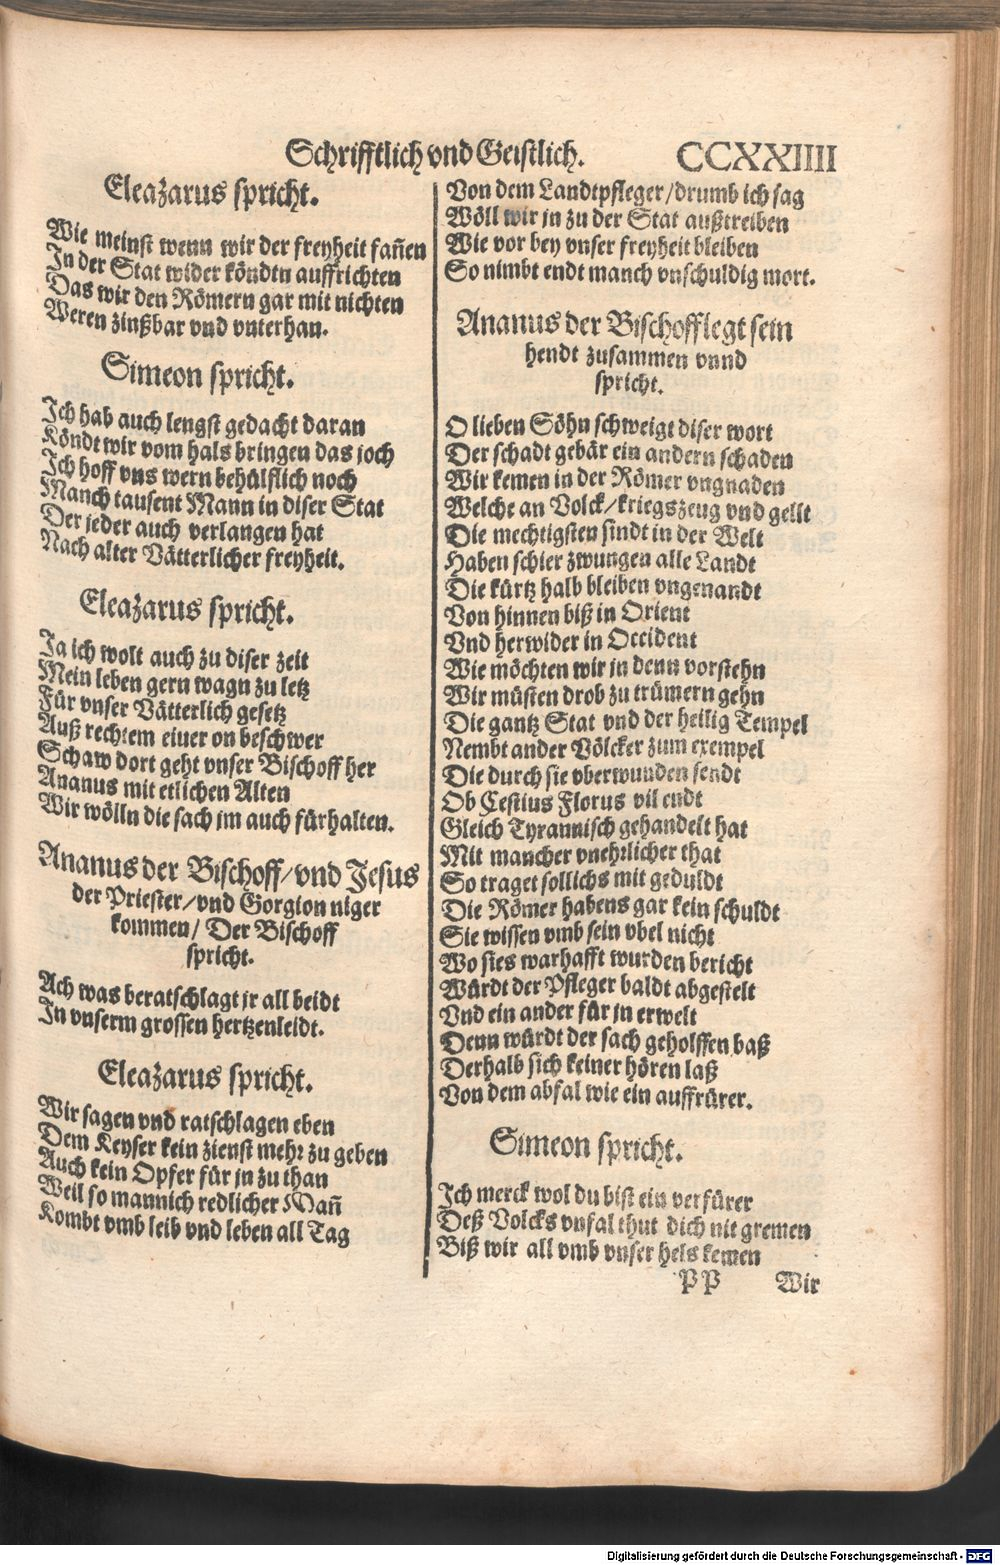 Schrifftlich vnd Geistlich. CCXXIIII
Eleazarus spricht.
Wie meinst wenn wir der freyheit fañen
In der Stat wider köndtn auffrichten
Das wir den Römern gar mit nichten
Weren zinßbar vnd vnterhan.
Simeon spricht.
Ich hab auch lengst gedacht daran
Köndt wir vom hals bringen das joch
Ich hoff vns wern behülflich noch
Manch tausent Mann in diser Stat
Der jeder auch verlangen hat
Nach alter Vätterlicher freyheit.
Eleazarus spricht.
Ja ich wolt auch zu diser zeit
Mein leben gern wagn zu letz
Für vnser Vätterlich gesetz
Auß rechtem eiuer on beschwer
Schaw dort geht vnser Bischoff her
Ananus mit etlichen Alten
Wir wölln die sach jm auch fürhalten.
Ananus der Bischoff/vnd Jesus
der Priester/vnd Gorgion niger
kommen/ Der Bischoff
spricht.
Ach was beratschlagt jr all beidt
In vnserm grossen hertzenleidt.
Eleazarus spricht.
Wir sagen vnd ratschlagen eben
Dem Keyser kein zienst mehr zu geben
Auch kein Opfer für jn zu than
Weil so mannich redlicher Mañ
Kombt vmb leib vnd leben all Tag
Von dem Landtpfleger/drumb ich sag
Wöll wir jn zu der Stat außtreiben
Wie vor bey vnser freyheit bleiben
So nimbt endt manch vnschuldig mort.
Ananus der Bischoff legt sein
hendt zusammen vnnd
spricht.
O lieben Söhn schweigt diser wort
Der schadt gebär ein andern schaden
Wir kemen in der Römer vngnaden
Welche an Volck/kriegszeug vnd gellt
Die mechtigsten sindt in der Welt
Haben schier zwungen alle Landt
Die kürtz halb bleiben vngenandt
Von hinnen biß in Orient
Vnd herwider in Occident
Wie möchten wir jn denn vorstehn
Wir müsten drob zu trümern gehn
Die gantz Stat vnd der heilig Tempel
Nembt ander Völcker zum exempel
Die durch sie vberwunden sendt
Ob Cestius Florus vil endt
Gleich Tyrannisch gehandelt hat
Mit mancher vnehrlicher that
So traget sollichs mit geduldt
Die Römer habens gar kein schuldt
Sie wissen vmb sein vbel nicht
Wo sies warhafft wurden bericht
Würdt der Pfleger baldt abgestelt
Vnd ein ander für jn erwelt
Denn würdt der sach geholffen baß
Derhalb sich keiner hören laß
Von dem abfal wie ein auffrürer.
Simeon spricht.
Ich merck wol du bist ein verfürer
Deß Volcks vnfal thut dich nit gremen
Biß wir all vmb vnser hels kemen
PP Wir
Digitalisierung gefördert durch die Deutsche Forschungsgemeinschaft - DFG